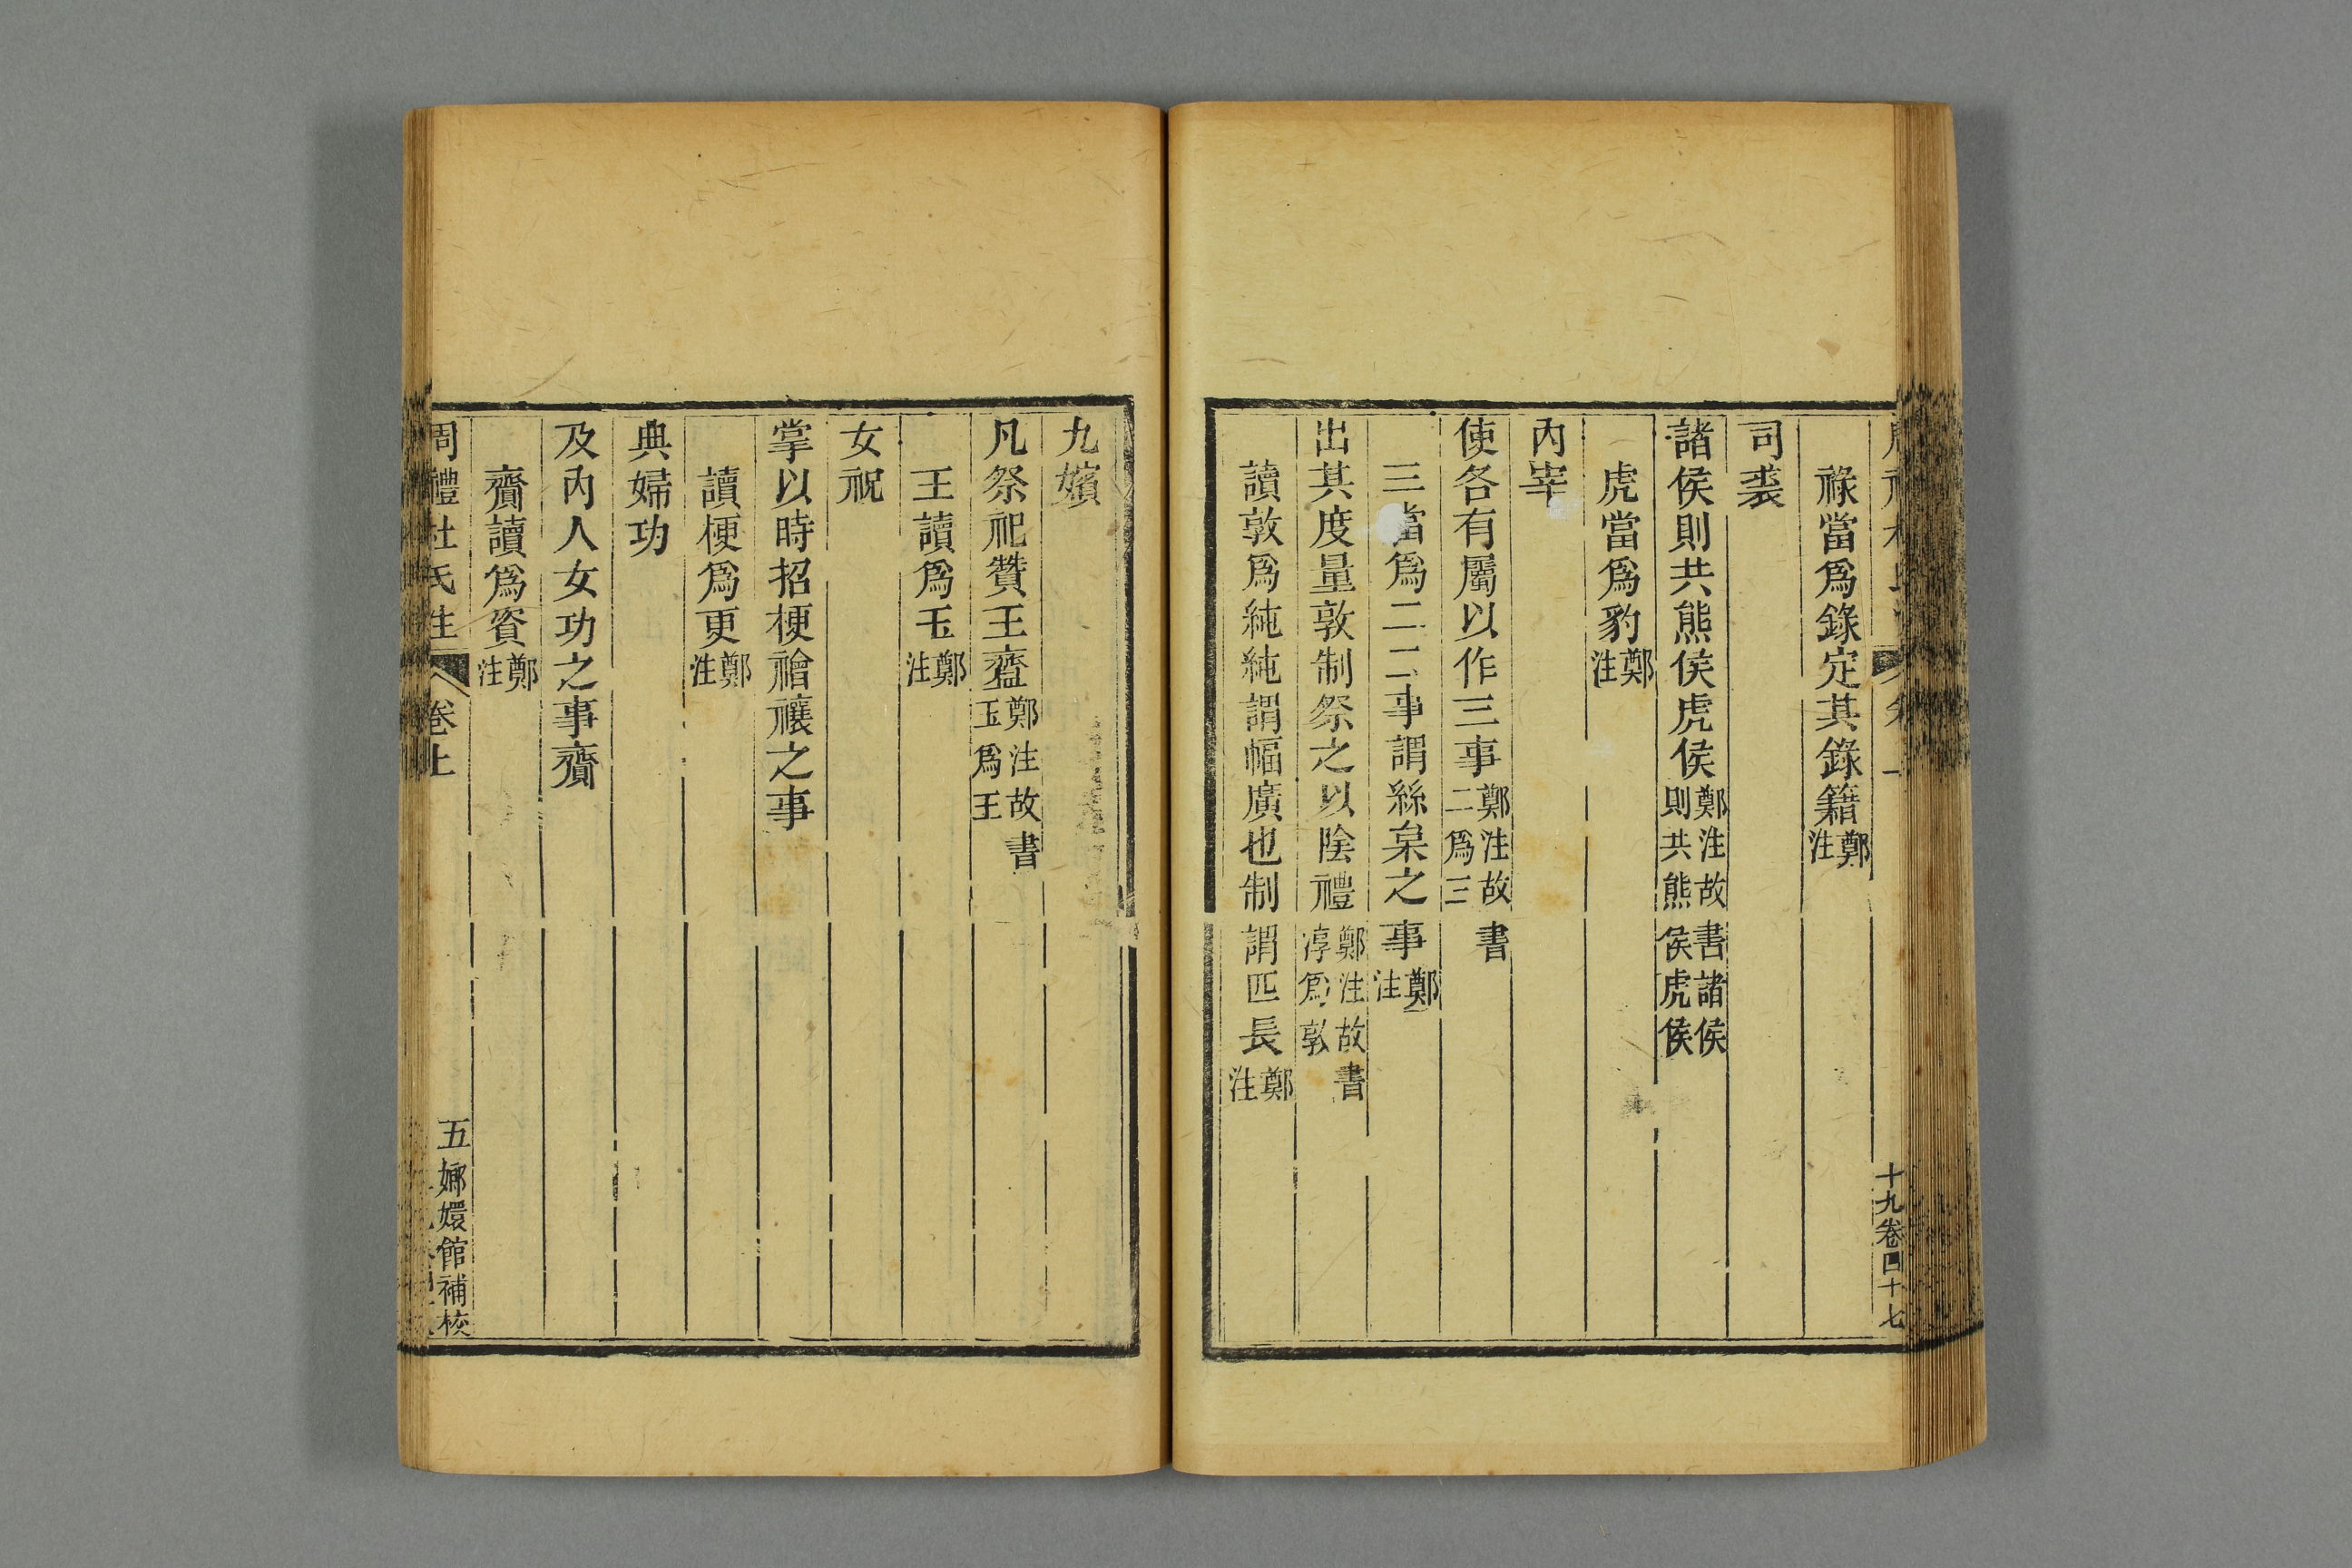 十九卷四十七
祿當爲錄定其錄籍鄭注
司裘
諸侯則共熊侯虎侯鄭注故書諸侯則共熊侯虎侯
虎當爲豹鄭注
內宰
使各有屬以作三事鄭注故書二爲三
三當爲二二事謂絲枲之事鄭注
出其度量敦制祭之以陰禮鄭注故書淳爲敦
讀敦爲純純謂幅廣也制謂匹長鄭注
九嬪
凡祭祀贊王齍鄭注故書玉爲王
王讀爲玉鄭注
女祝
掌以時招梗禬禳之事
讀梗爲更鄭注
典婦功
及內人女功之事齎
齎讀爲資鄭注
周禮杜氏注 卷上 五 嫏嬛館補校